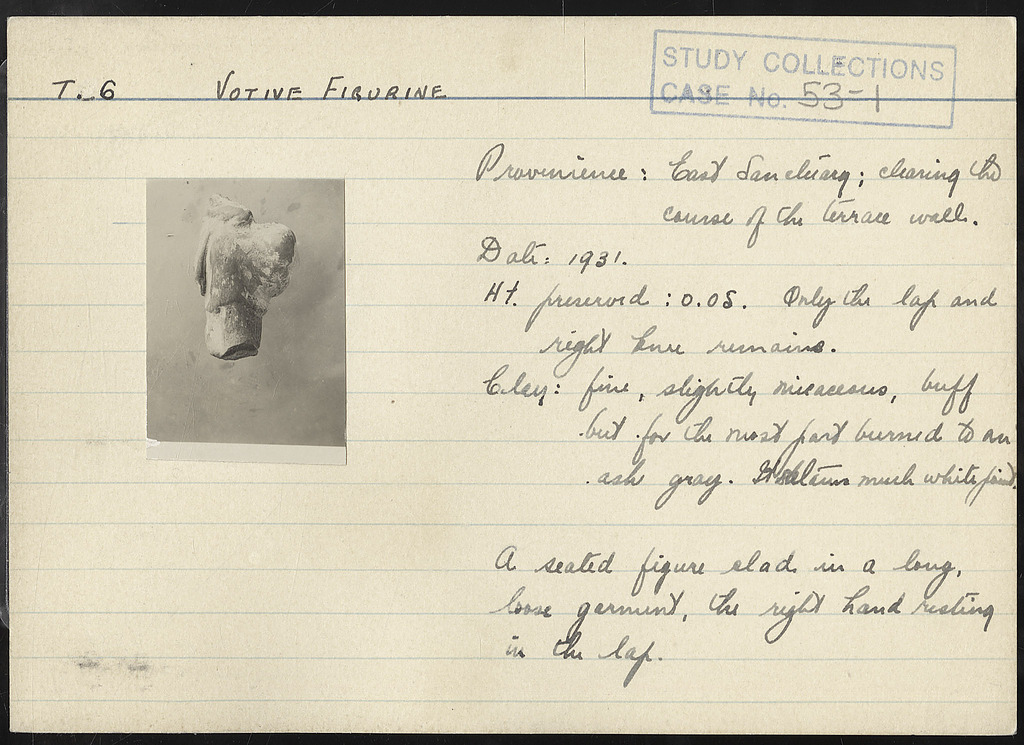 STUDY COLLECTIONS
CASE No. 53-1
T. 6 VOTIVE FIGURINE
Provenience: East Sanctuary; clearing the
course of the terrace walls.
Date: 1931.
Ht. preserved: 0.05. Only the lap and
right knee remains.
Clay: fine, slightly micaceous, buff
but for the most part burned to an
ash gray. It retains much white paint.
A seated figure clad in a long,
loose garment, the right hand resting
in the lap.